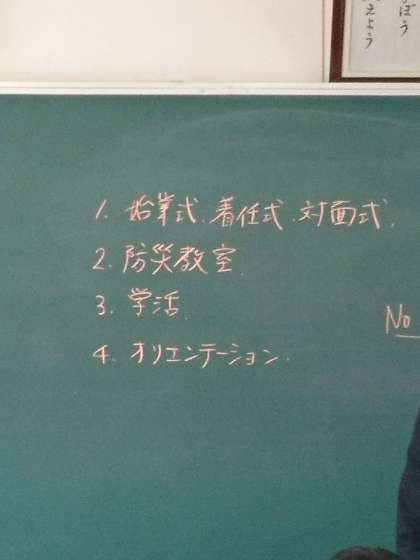 ぼう
えよう
1. 始業式、着任式、対面式、
2. 防災教室、
3. 学活、
4. オリエンテーション、
No